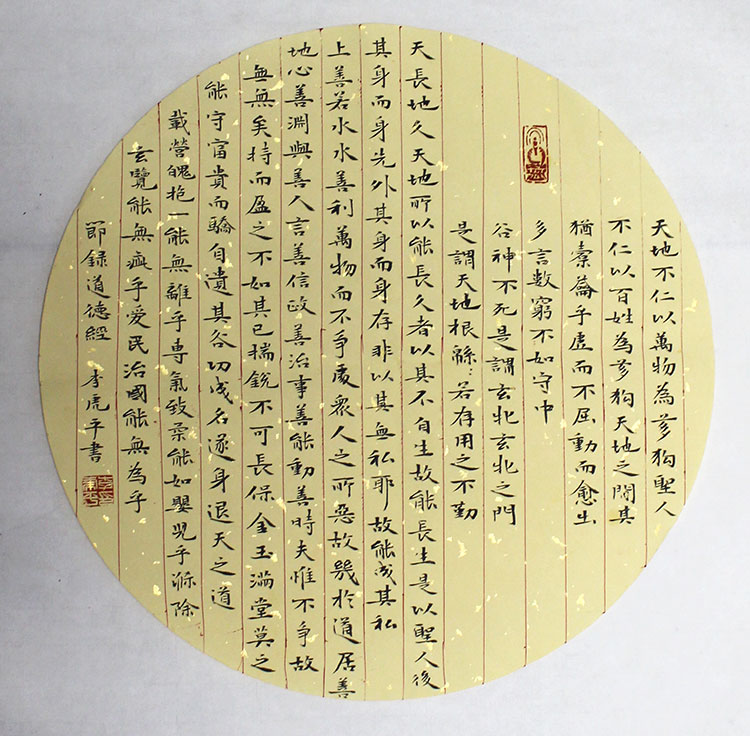 天地不仁以萬物為芻狗聖人
不仁以百姓為芻狗天地之間其
猶橐籥乎虛而不屈動而愈出
多言數窮不如守中
谷神不死是謂玄牝玄牝之門
是謂天地根緜:若存用之不勤
天長地久天地所以能長久者以其不自生故能長生是以聖人後
其身而身先外其身而身存非以其無私耶故能成其私
上善若水水善利萬物而不爭處衆人之所惡故幾於道居善
地心善淵與善人言善信政善治事善能動善時夫惟不爭故
無無矣持而盈之不如其已揣銳不可長保金玉滿堂莫之
能守富貴而驕自遺其咎功成名遂身退天之道
載營魄抱一能無離乎專氣致柔能如嬰兒乎滌除
玄覽能無疵乎愛民治國能無為乎
節錄道德經 李虎平書